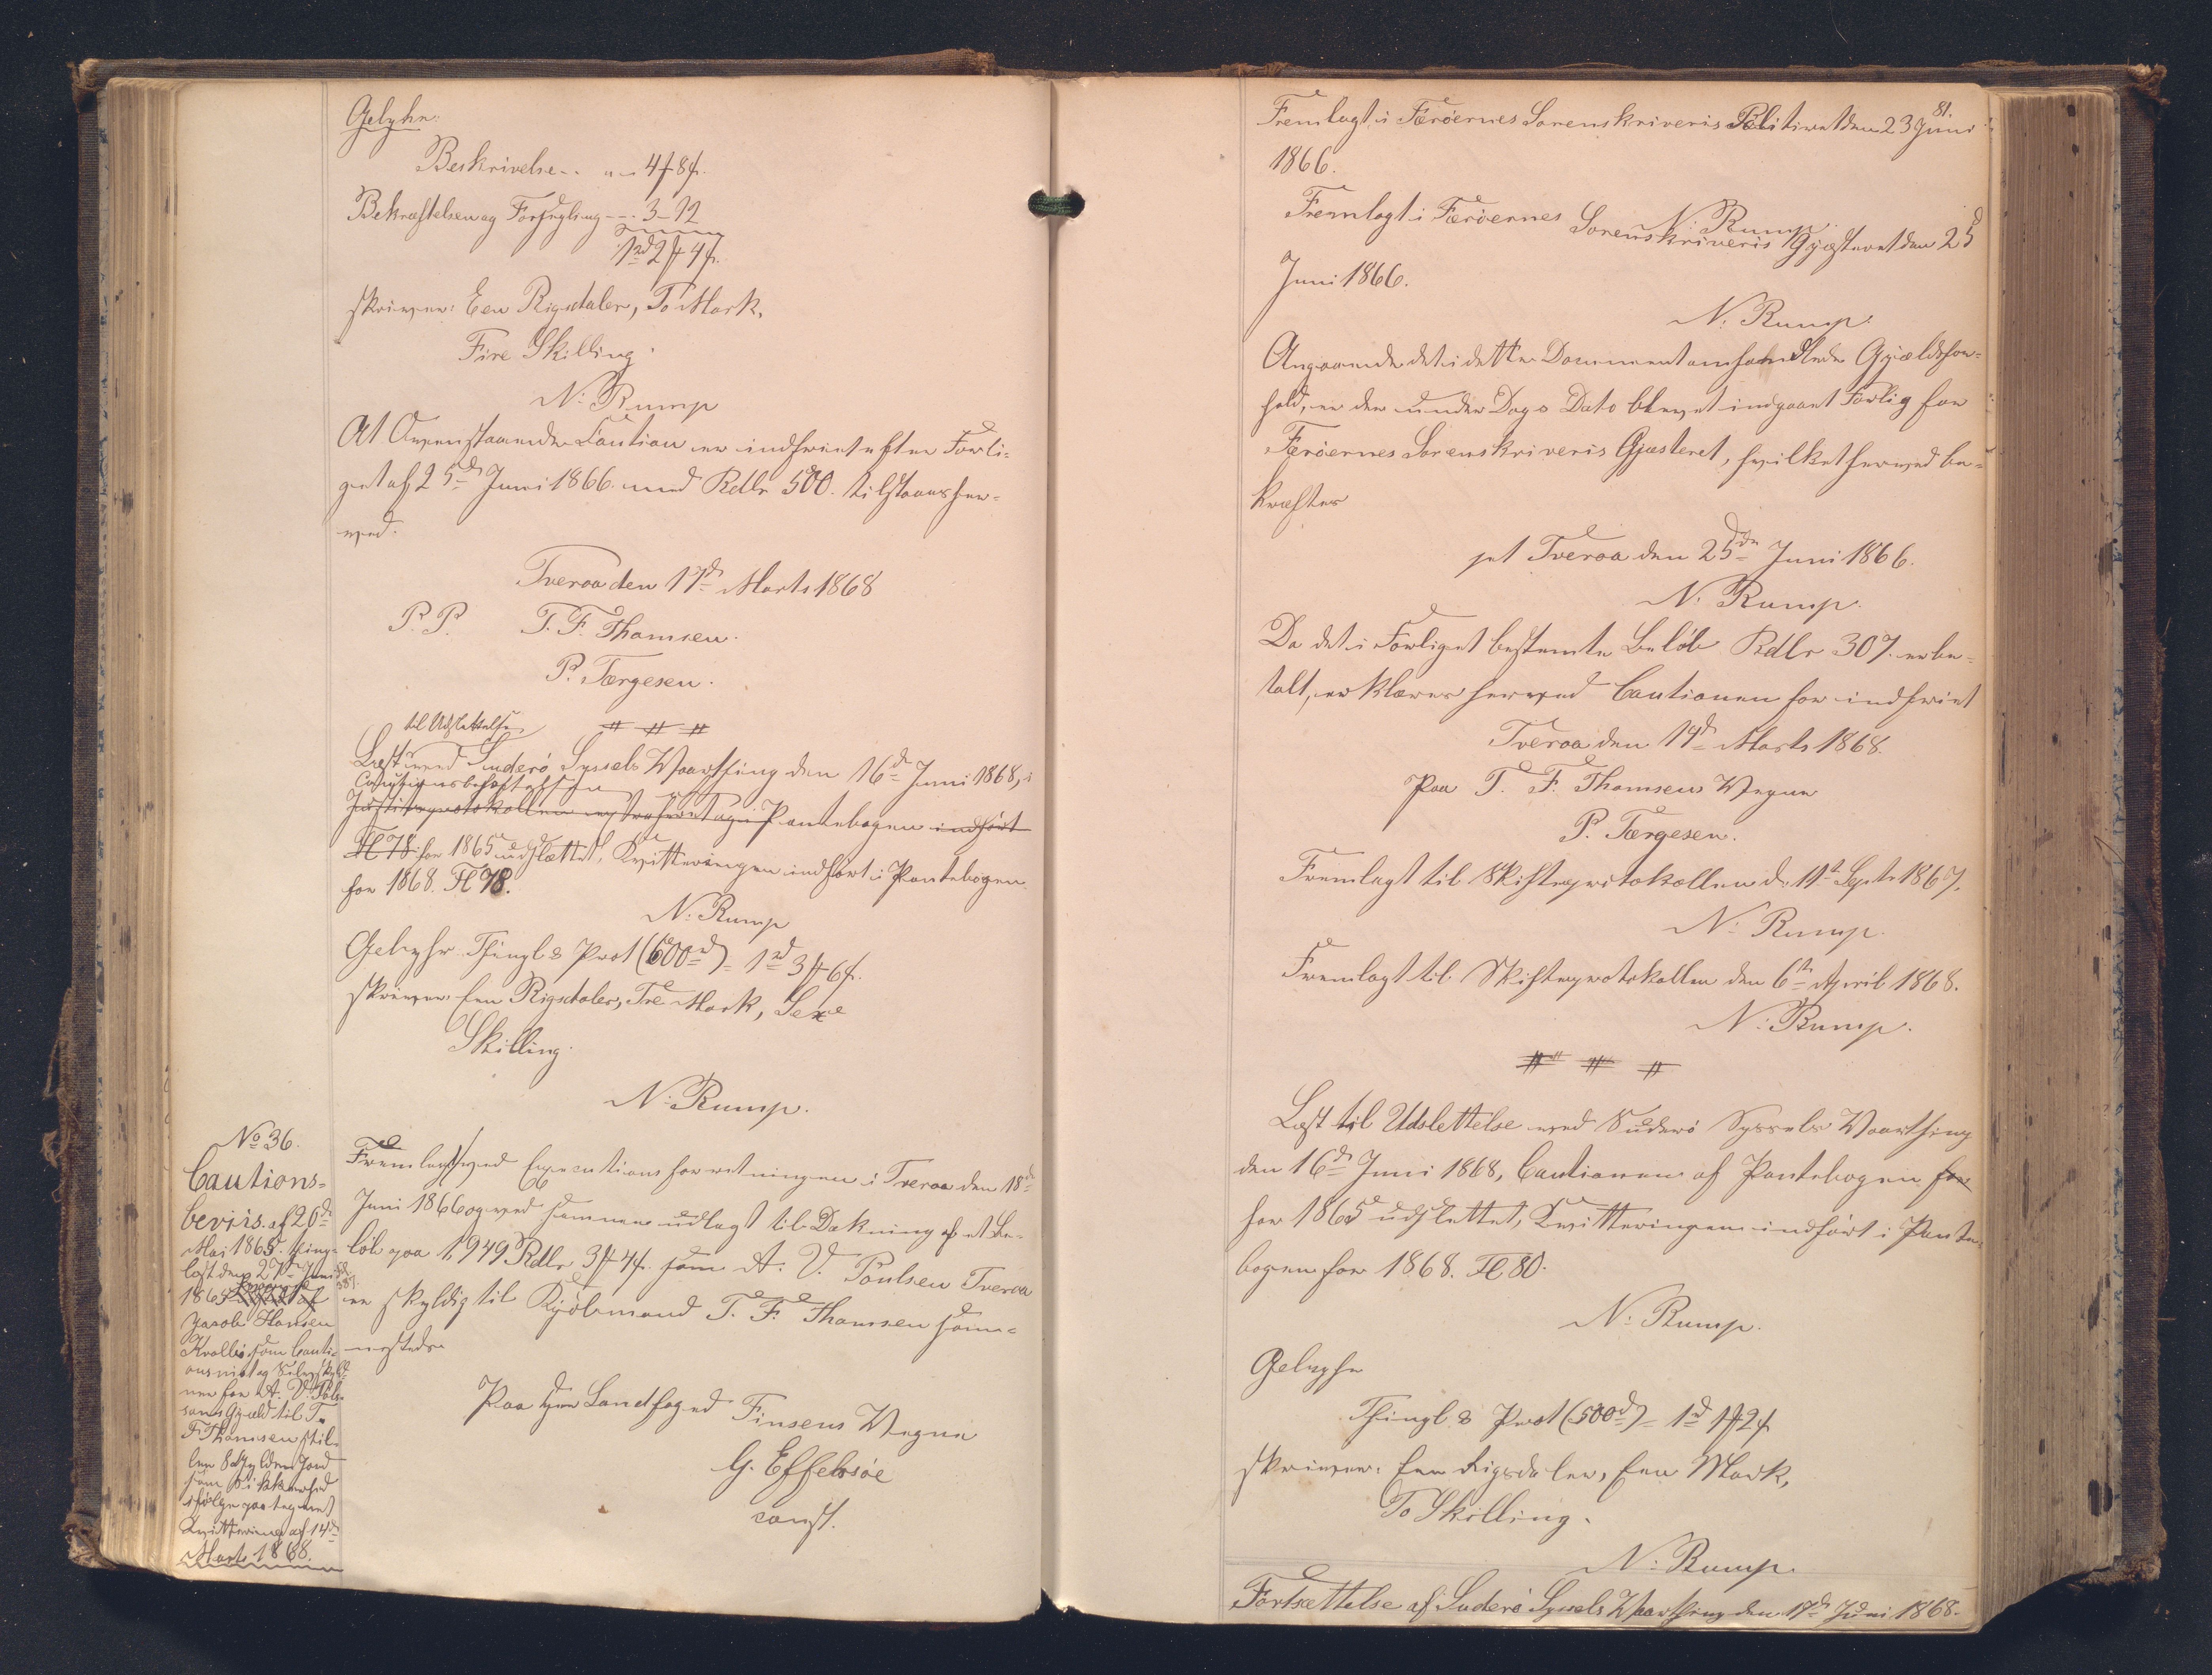 Gebyhr:
Beskrivelse - . " - 4 ꝳ 8 ß.
Bekræftelsen og Forsegling - - . 3 - 12
1 rd 2 ꝳ 4 ß.
skriver: Een Rigsdaler, To Mark,
Fire Skilling.
N: Rump
At Ovenstaaende Caution er indfriet efter Forli=
get af 25de Juni 1866. med Rdlr 500. tilstaaes her=
ved.
Tveraa den 17d Marts 1868
P. P. T. F. Thomsen.
P. Tørgesen.
til Udslettelse
Læst ved Suderö Syssels Vaarthing den 16d Juni 1868, i
Cautionsbehæftelsen
Justitsprotokollen Pantebogen indført
Fl 78 for 1865 udslettet, Kvitteringen indført i Pantebogen
for 1868. Fl 78.
N: Rump
Gebyhr Thingl & Prot (600rd) = 1rd 3 ꝳ 6 ß.
skriver: Een Rigsdaler, Tre Mark, Sex
Skilling.
N: Rump.
No 36.
Cautions=
beviis af 26d
Mai 1865. thing=
læst den 27de Juni
1865
Jacob Hansen
som Cauti=
onist og Selvskyld=
ner for A. V. Pouls=
sens Gjæld til T.
F. Thomsen stil=
ler 8 Gylden Jord
som Sikkerhed
ifølge paategnet
Kvittering af 14de
Marts 1868.
Fremlagt ved Executionsforretningen i Tveraa den 18de
Juni 1866 og ved samme udlagt til Dækning af et Be=
løb paa 1,949 Rdlr 3 ꝳ 4 ß. som A. V. Poulsen Tveraa
er skyldig til Kjøbmand T. F. Thomsen sam=
mesteds.
Paa Hr Landfoged Finsens Vegne
G. Effersøe
const.
81.
Fremlagt i Færöernes Sorenskriveris Politiret den 23 Juni
1866.
N. Rump.
Fremlagt i Færöernes Sorenskriveris Gjæsteret den 25d
Juni 1866.
N: Rump.
Angaaende det i dette Document omhandlede Gjældsfor=
hold, er der under Dags Dato blevet indgaaet Forlig for
Færöernes Sorenskriveris Gjæsteret, hvilket herved be=
kræftes
pt Tveraa den 25de Juni 1866.
N. Rump.
Da det i Forliget bestemte Beløb Rdlr 307. er be=
talt, erklæres herved Cautionen for indfriet
Tveraa den 14d Marts 1868.
Paa T. F. Thomsens Vegne
P. Tørgesen.
Fremlagt til Skifteprotokollen d. 11te Septr 1867.
N: Rump.
Fremlagt til Skifteprotokollen den 6te April 1868.
N: Rump.
Læst til Udslettelse ved Suderö Syssels Vaarthing
den 16d Juni 1868, Cautionen af Pantebogen for
for 1865 udslettet, Kvitteringen indført i Pante=
bogen for 1868. Fl 80.
N: Rump.
Gebyhr
Thingl. & Prot (500rd) = 1rd 1 ꝳ 2 ß
skriver: Een Rigsdaler, Een Mark,
To Skilling.
N: Rump.
Fortsættelse af Suderö Syssels Vaarthing den 17d Juni 1868.